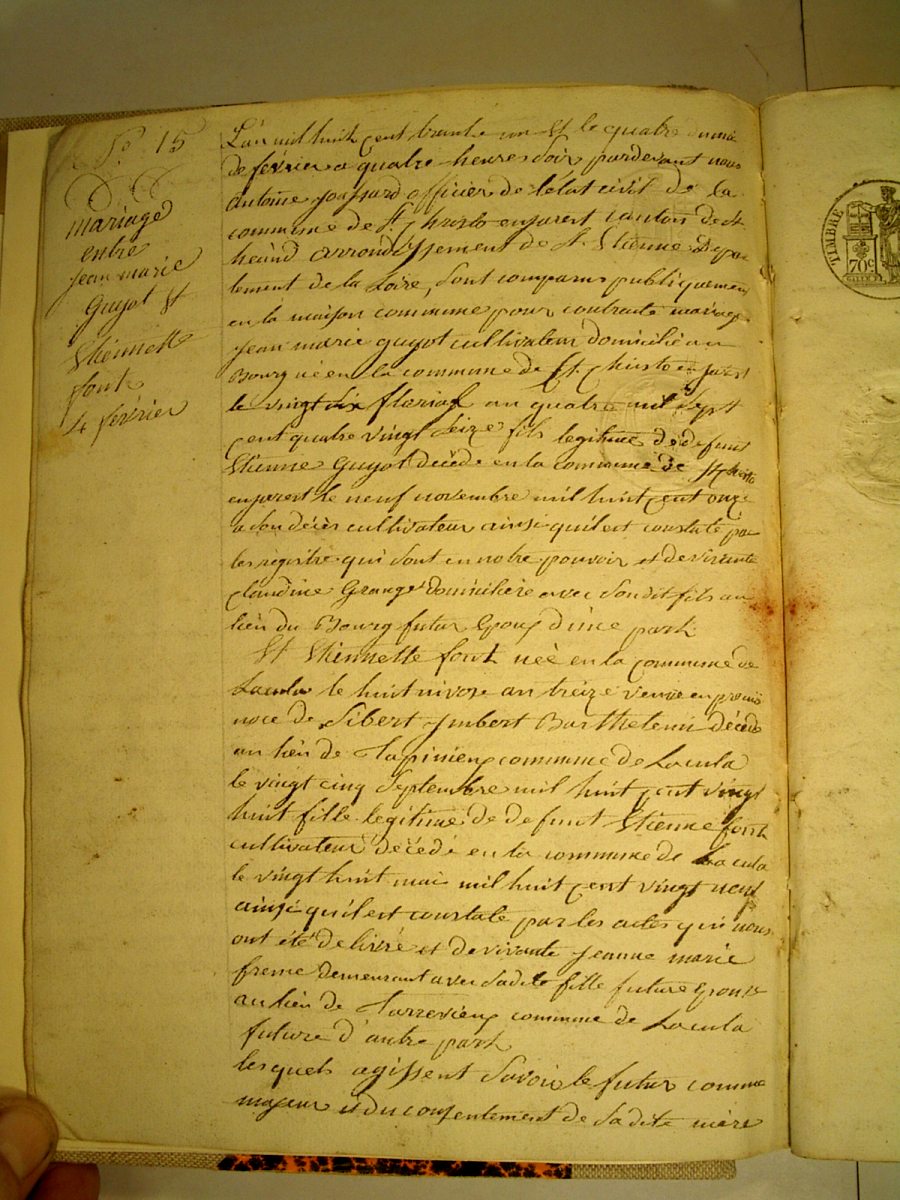 No 15
mariage
entre
jean marie
Guyot Et
Etiennette
font
4 février
L'an mil huit cent trente un Et le quatre du moi
de février a quatre heures soir pardevant nous
antoine joassard officier de létat civil de la
commune de St Christo enjarest canton de St
heand arrondissement de St Etienne Depar
tement de la Loire, Sont comparus publiquement
en la maison commune pour contracte mariage
Jean marie guyot cultivateur domicilié au
Bourg né en la commune de St Christo en jarest
le vingt dix floréal an quatre mil Sept
cent quatre vingt Seize fils legitime de defunt
Etienne Guyot décédé en la commune de St Christo
enjarest le neuf novembre mil huit cent onze
a Son décès cultivateur ainsi qu'il est constaté par
les registre qui Sont en notre pouvoir et de vivante
claudine Grange Domiciliere avec Son dit fils au
lieu du Bourg futur Epoux d'une part
Et Etiennette font née en la commune de
Lacula le huit nivose an treize veuve en premie
noce de Sibert Imbert Barthelemi décédé
au lieu de commune de Lacula
le vingt cinq Septembre mil huit cent vingt
huit fille legitime de defunt Etienne font
cultivateur décédé en la commune de Lacula
le vingt huit mai mil huit cent vingt neuf
ainsi qu'il est constaté par les actes qui nous
ont été délivré et de vivante jeanne marie
freme demeurant avec Sadite fille future Epouse
au lieu de commune de Lacula
future d'autre part
lesquels agissent Savoir le futur comme
majeur et du consentement de Sadite mère
TIMBRE
70c